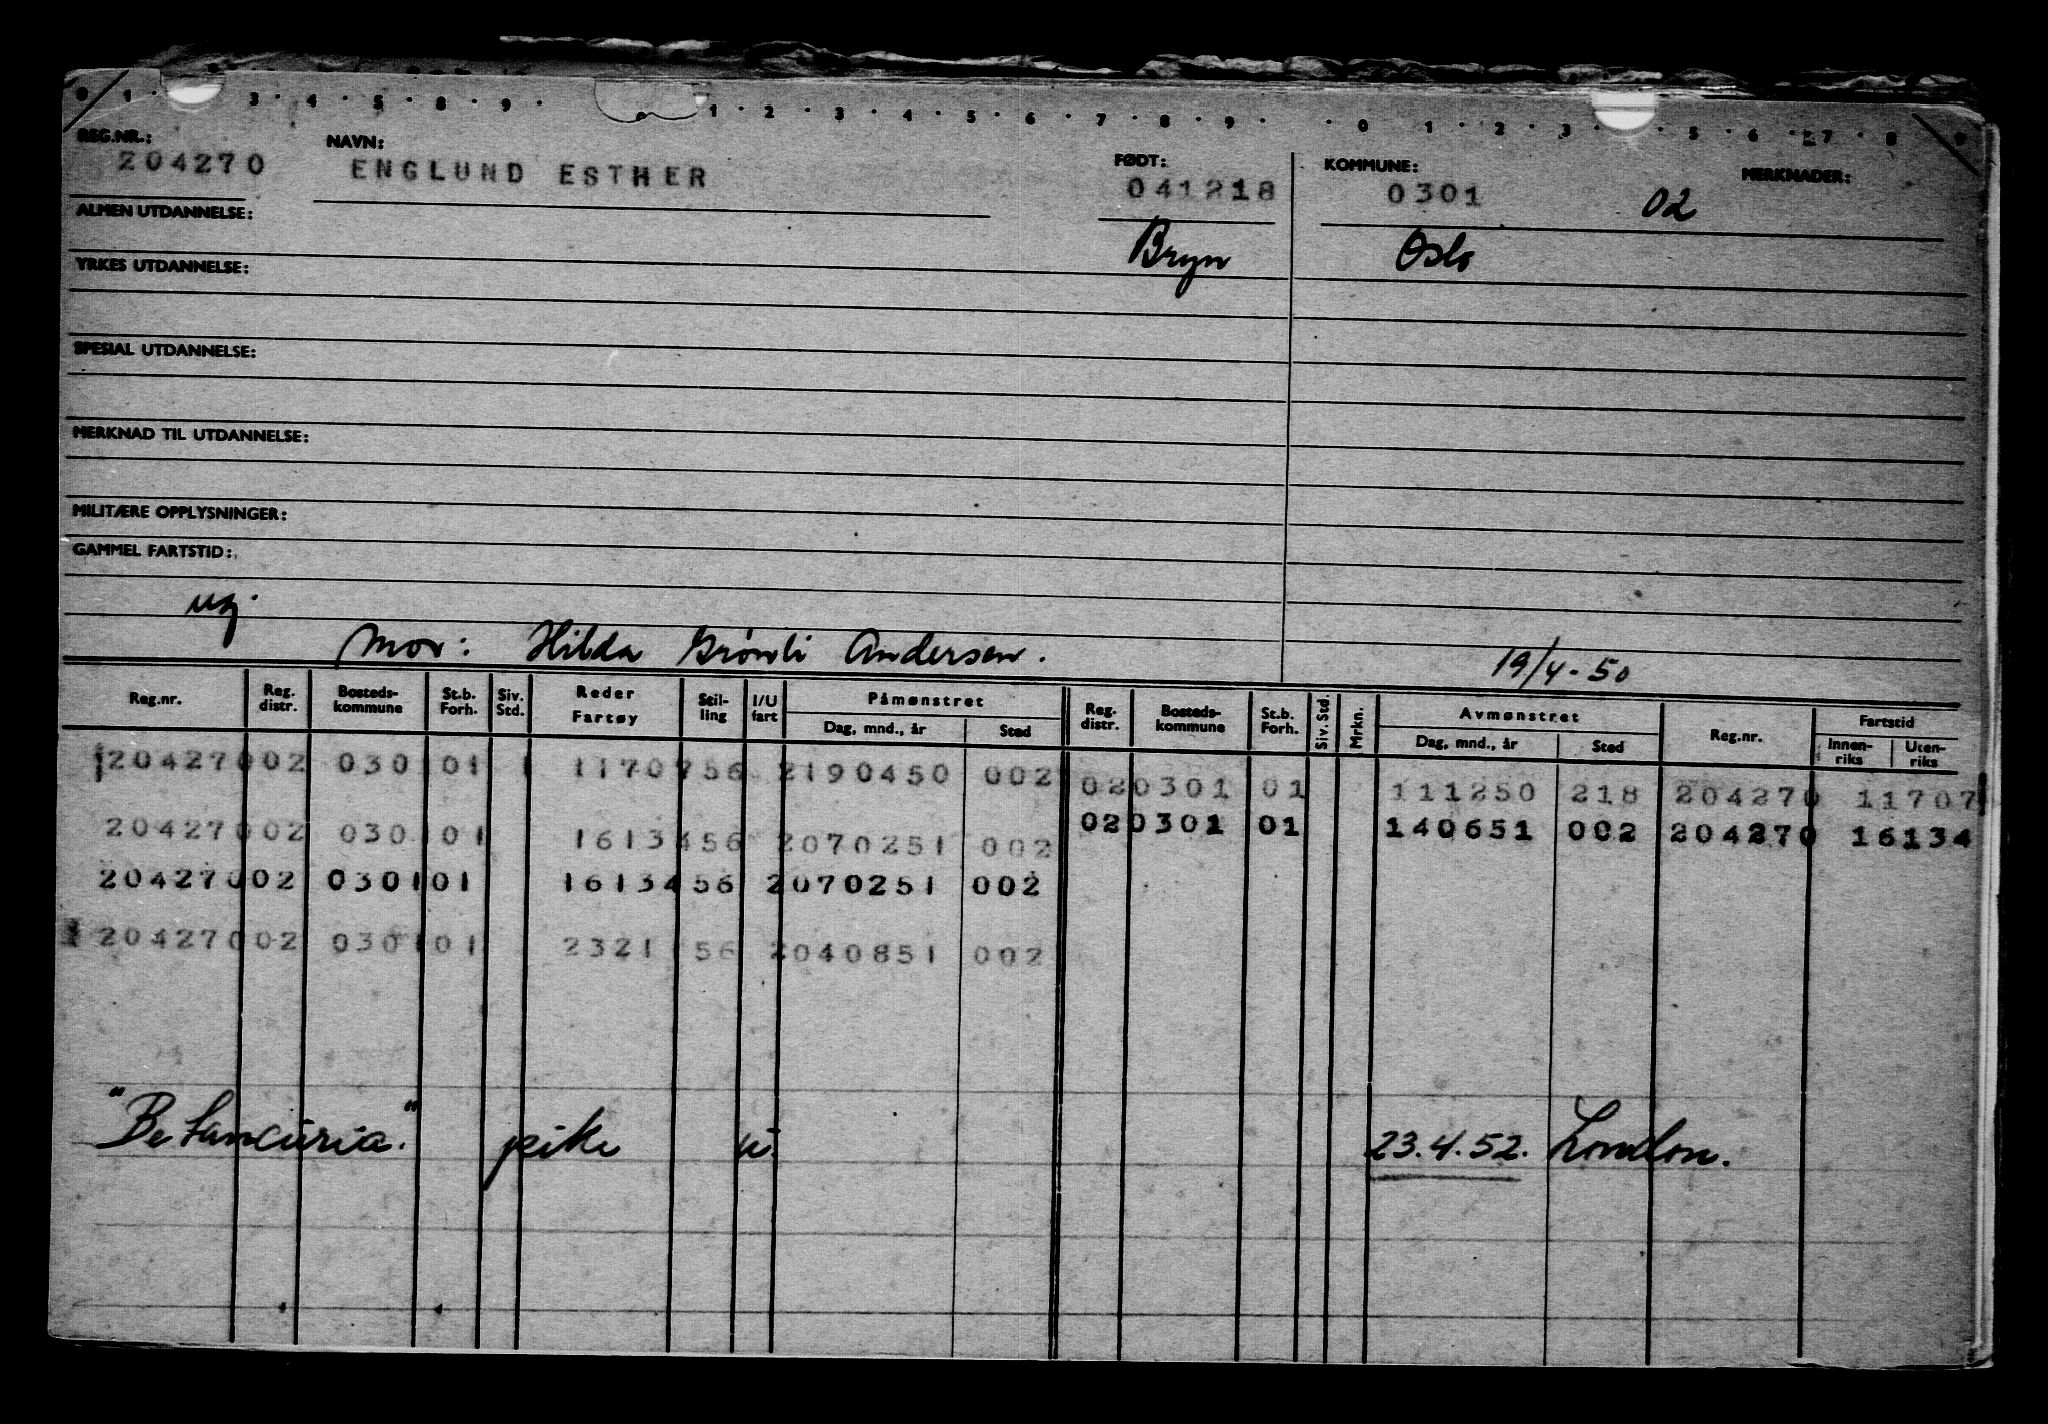 0 1 · 3 · 4 · 5 · 8 · 9 · 1 · 2 · 3 · 4 · 5 · 6 · 7 · 8 · 9 · · 0 1 · 2 · 3 · · 5 · 6 · 7 · 8 9
REG.NR.: NAVN: FØDT: KOMMUNE: MERKNADER:
204270 ENGLUND ESTHER 041218 0301 02
ALMEN UTDANNELSE: Bryn Oslo
YRKES UTDANNELSE:
SPESIAL UTDANNELSE:
MERKNAD TIL UTDANNELSE:
MILITÆRE OPPLYSNINGER:
GAMMEL FARTSTID:
Mor: Hilda Grønli Andersen. 19/4-50
Reg.nr. Reg. distr. Bosteds-kommune St.b. Forh. Siv. Std. Reder Fartøy Stil-ling I/U fart Påmønstret Dag, mnd., år Sted Reg. distr. Bosteds-kommune St.b. Forh. Siv. Std. Mrkn. Avmønstret Dag, mnd., år Sted Reg.nr. Fartstid Innen-riks Uten-riks
204270 02 0301 01 1 11707 56 2 190450 002 02 0301 01 111250 218 204270 11707
204270 02 0301 01 16134 56 2 070251 002 02 0301 01 140651 002 204270 16134
204270 02 0301 01 16134 56 2 070251 002
204270 02 0301 01 2321 56 2 040851 002
"Betancuria." pike u. 23.4.52. London.